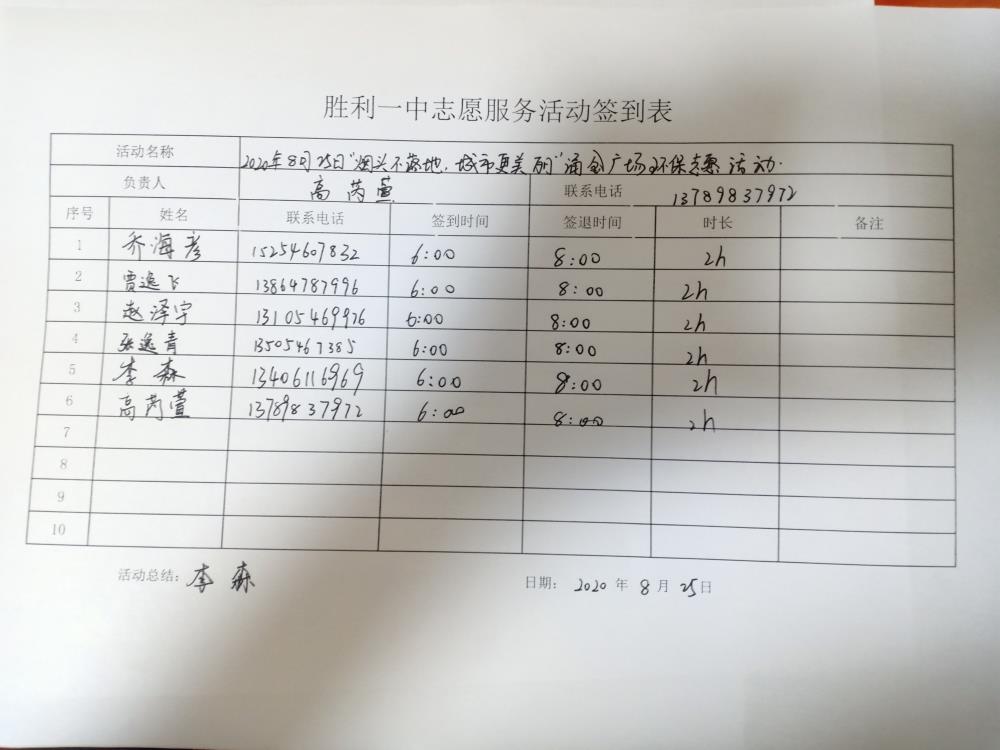 胜利一中志愿服务活动签到表
活动名称 2020年8月25日"烟头不落地，城市更美丽"涌金广场环保志愿活动.
负责人 高芮萱 联系电话 13789837972
序号 姓名 联系电话 签到时间 签退时间 时长 备注
1 乔海彦 15254607832 6:00 8:00 2h
2 贾逸飞 13864787996 6:00 8:00 2h
3 赵泽宇 13105469976 6:00 8:00 2h
4 张逸青 13505467385 6:00 8:00 2h
5 李森 13406116969 6:00 8:00 2h
6 高芮萱 13789837972 6:00 8:00 2h
7
8
9
10
活动总结：李森 日期： 2020 年 8 月 25 日